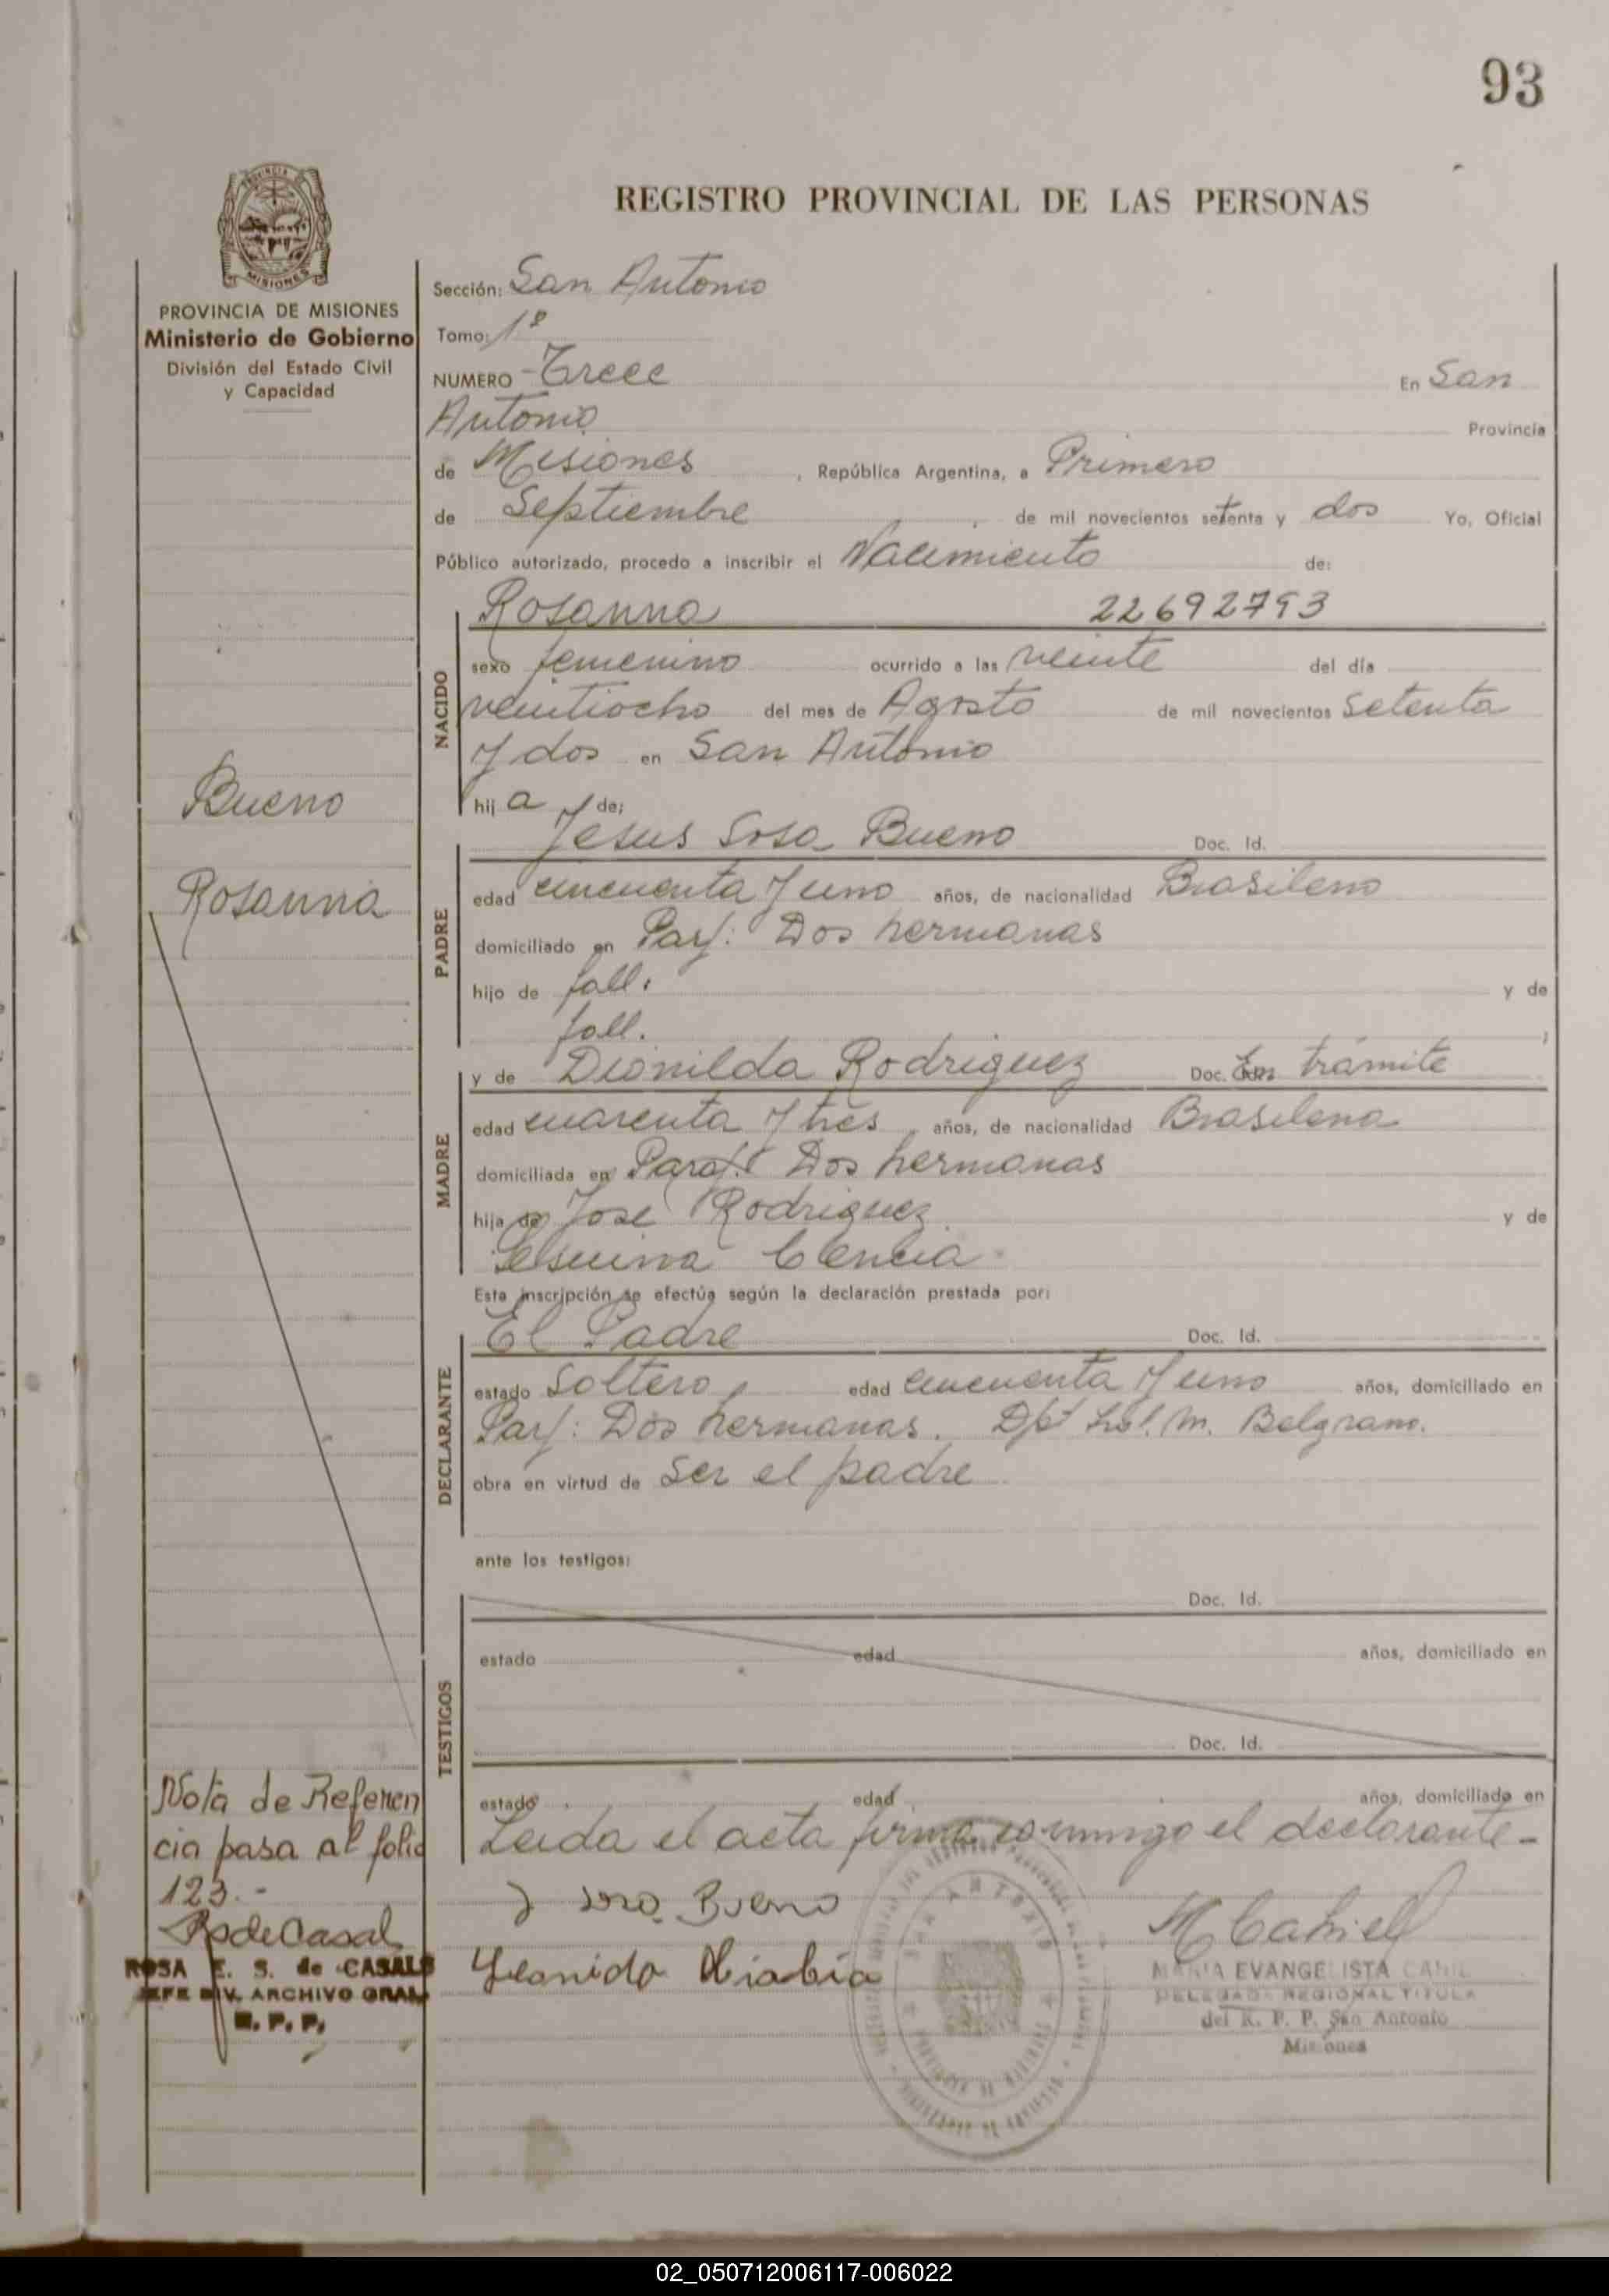 93
REGISTRO PROVINCIAL DE LAS PERSONAS
MISIONES
PROVINCIA DE MISIONES
Ministerio de Gobierno
División del Estado Civil
y Capacidad
Sección: San Antonio
Tomo: 1º
NUMERO - Trece En San
Antonio Provincia
de Misiones, República Argentina, a Primero
de Septiembre, de mil novecientos setenta y dos Yo, Oficial
Público autorizado, procedo a inscribir el Nacimiento de:
NACIDO
Rosanna 22692793
sexo femenino ocurrido a las veinte del día
veintiocho del mes de Agosto de mil novecientos setenta
y dos en San Antonio
hija de:
Bueno
Rosanna
PADRE
Jesus Sosa Bueno Doc. Id.
edad cincuenta y uno años, de nacionalidad Brasileno
domiciliado en Parj: Dos hermanas
hijo de fall. y de
fall.
MADRE
y de Dionilda Rodriguez Doc. En trámite
edad cuarenta y tres, años, de nacionalidad Brasilena
domiciliada en Dos hermanas
hija de Jose Rodriguez y de
Clencia
Esta inscripción se efectúa según la declaración prestada por:
DECLARANTE
El Padre Doc. Id.
estado Soltero, edad cincuenta y uno años, domiciliado en
Parj: Dos hermanas. M. Belgrano.
obra en virtud de ser el padre
ante los testigos:
TESTIGOS
Doc. Id.
estado edad años, domiciliado en
Doc. Id.
estado edad años, domiciliado en
Leida el acta firma conmigo el declarante -
Nota de Referen
cia pasa al folio
123.-
RSdeCasal
ROSA E. S. de CASALS
JEFE DIV. ARCHIVO GRAL
R. P. P.
J Sosa Bueno
MARIA EVANGELISTA
DELEGADA REGIONAL TITULA
del R. P. P. San Antonio
Misiones
SAN ANTONIO
02_050712006117-006022